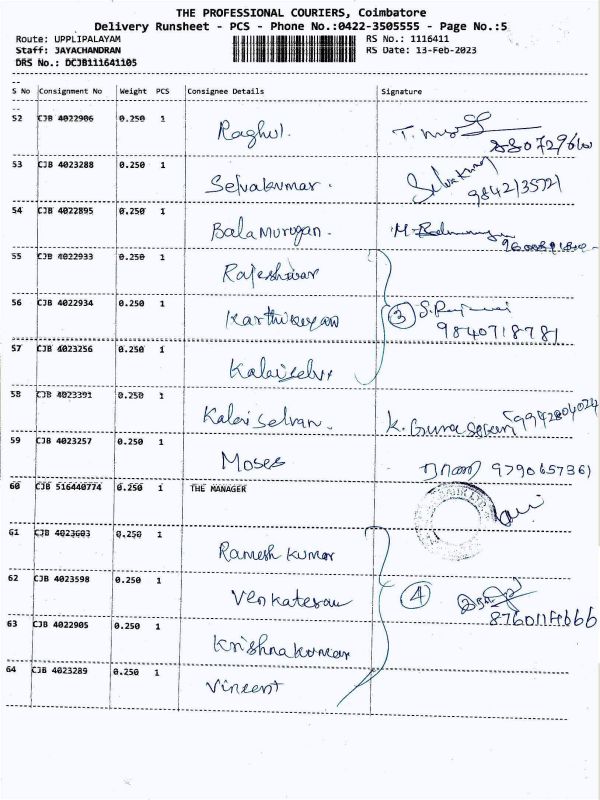 THE PROFESSIONAL COURIERS, Coimbatore
Delivery Runsheet - PCS - Phone No.:0422-3505555 - Page No.:5
Route: UPPLIPALAYAM RS No.: 1116411
Staff: JAYACHANDRAN RS Date: 13-Feb-2023
DRS No.: DCJB111641105
S No Consignment No Weight PCS Consignee Details Signature
52 CJB 4022906 0.250 1 Raghul.
53 CJB 4023288 0.250 1 Selvakumar. Selvakumar
9842135721
54 CJB 4022895 0.250 1 Bala Murugan.
55 CJB 4022933 0.250 1 Rajeshwar
56 CJB 4022934 0.250 1 Karthikeyan 3
9840718781
57 CJB 4023256 0.250 1 Kalaiselvi
58 CJB 4023391 0.250 1 Kalai selvan. K. Guna sekaran 9942804024
59 CJB 4023257 0.250 1 Moses 9790657361
60 CJB 516440774 0.250 1 THE MANAGER
61 CJB 4023603 0.250 1 Ramesh kumar
62 CJB 4023598 0.250 1 Venkatesan 4
63 CJB 4022905 0.250 1 Krishnakumar
64 CJB 4023289 0.250 1 Vincent